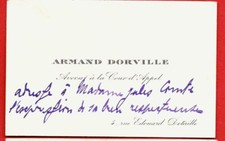 ARMAND DORVILLE
Avocat à la Cour d'Appel
adresse à Madame Jules Comte
l'expression de sa bien respectueuse
rue Edouard Detaille